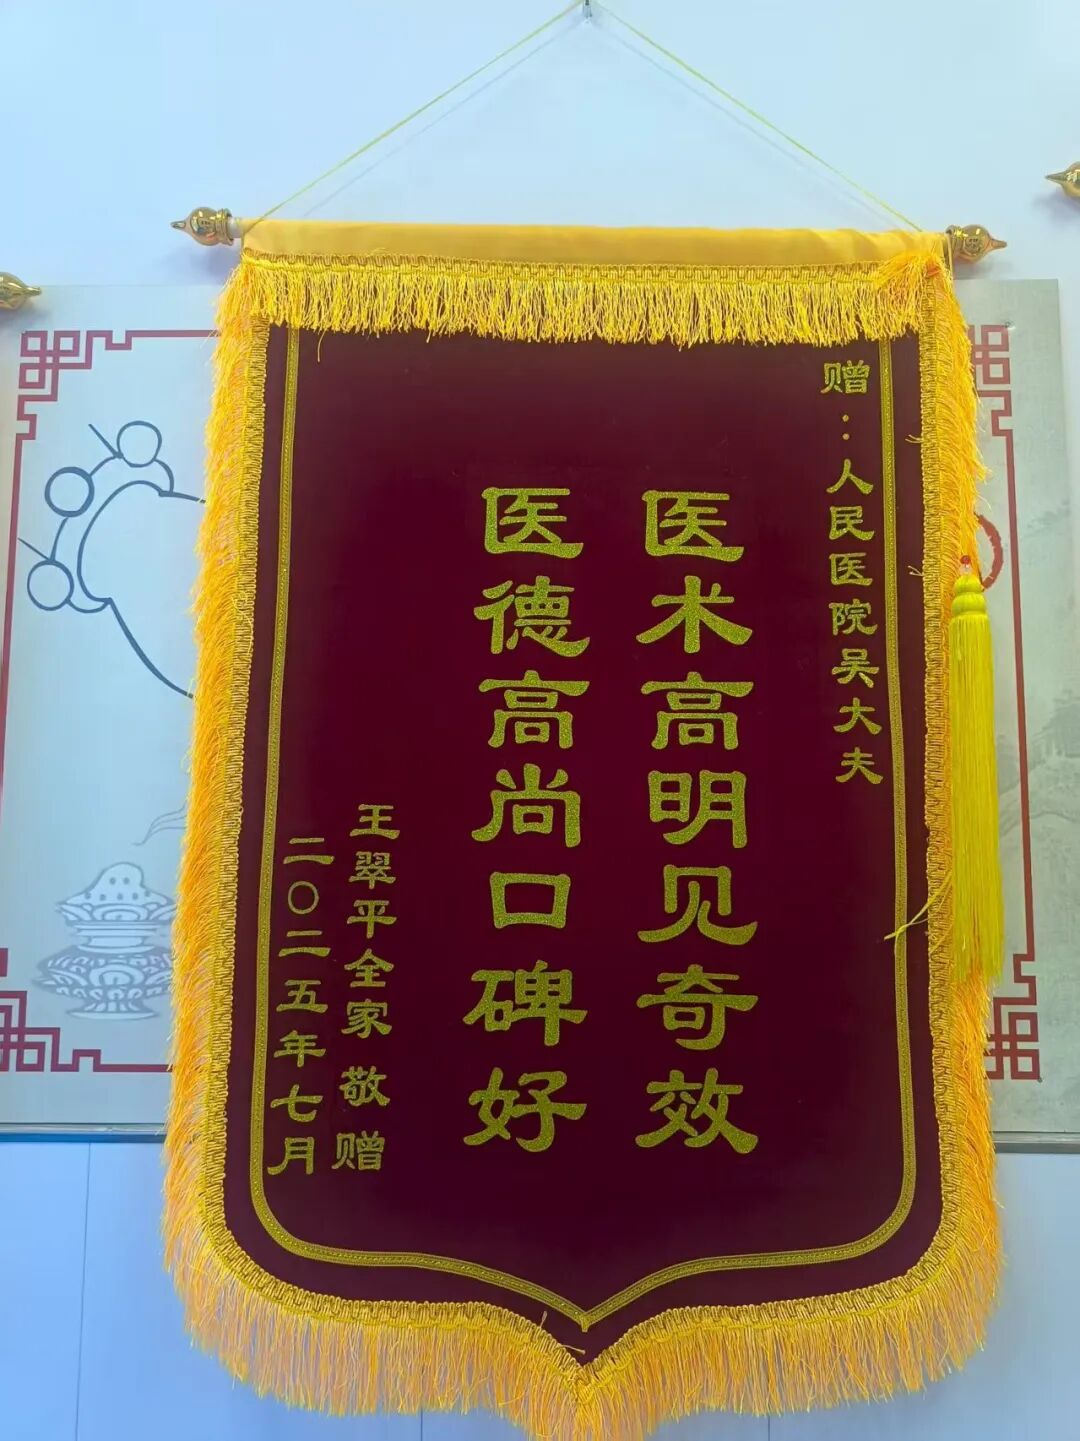 赠：人民医院吴大夫
医术高明见奇效
医德高尚口碑好
王翠平全家敬赠
二〇二五年七月